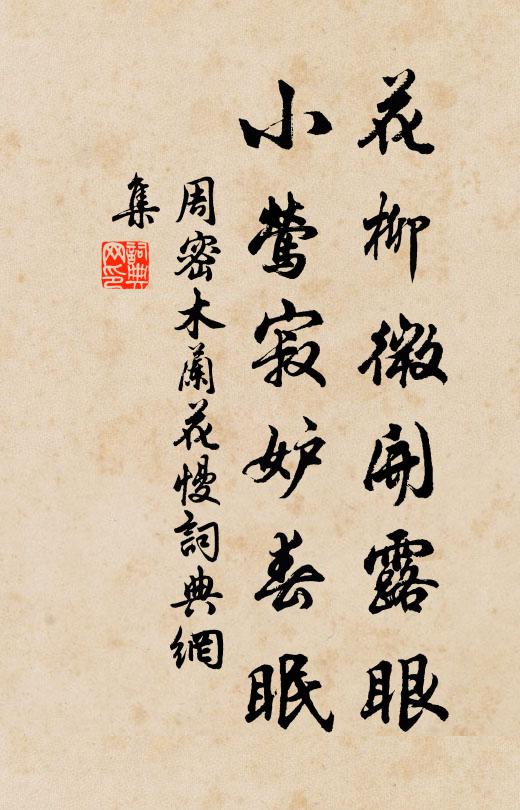 花柳微開露眼
小鶯寂妒春眠
周密木蘭花慢詞典網
集
詞典網印